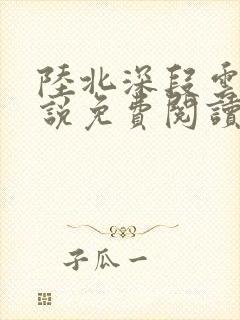 陸北深段雲
說免費閱讀
子瓜一